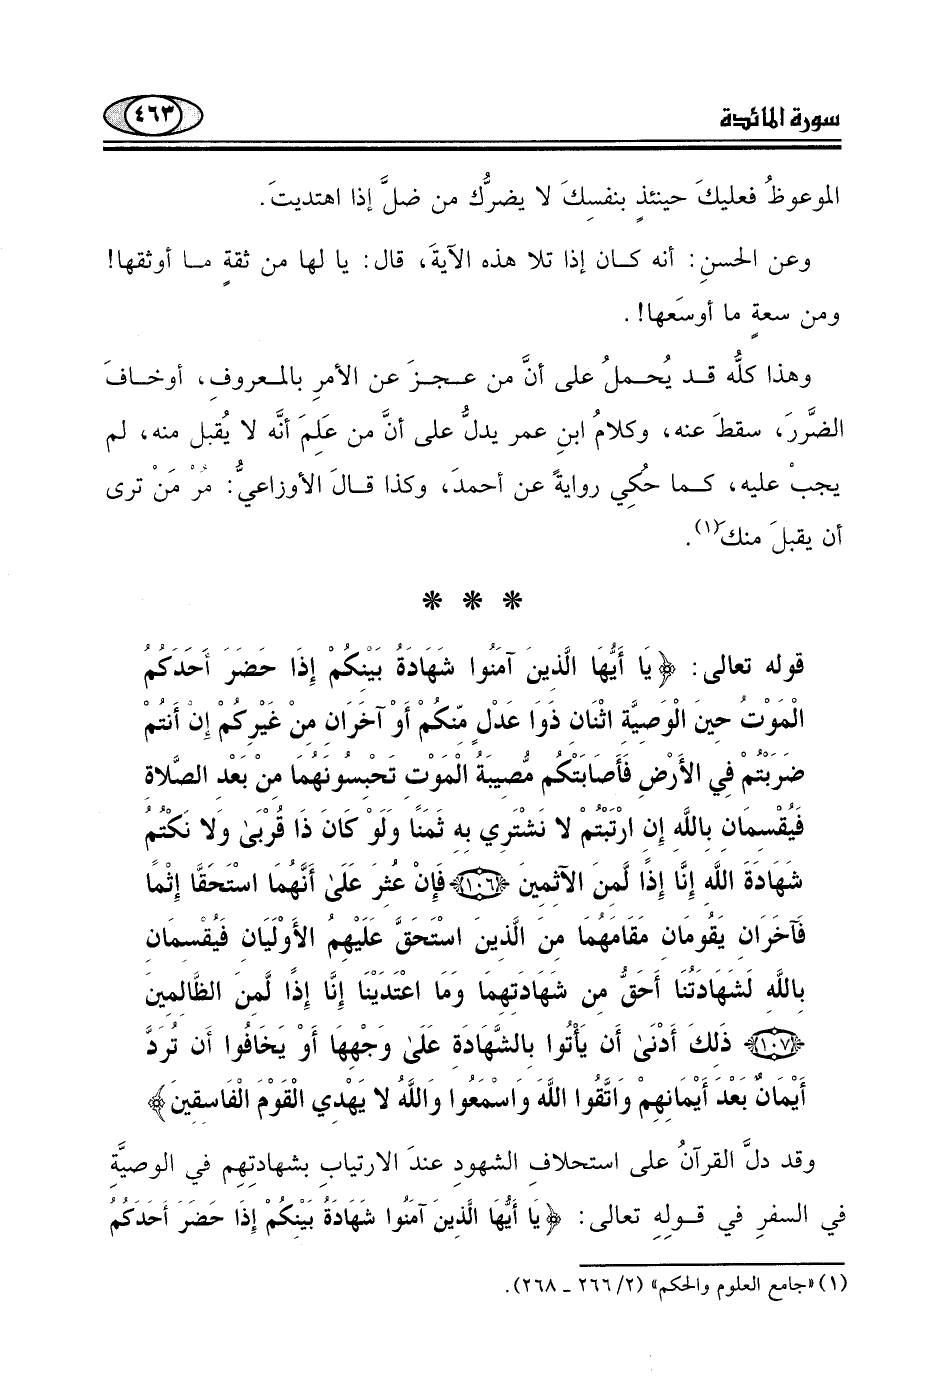 سورة المائدة
٤٦٣
الموعوظُ فعليكَ حينئذٍ بنفسِكَ لا يضرُّك من ضلَّ إذا اهتديتَ.
وعن الحسنِ: أنه كـان إذا تلا هذه الآيةَ، قال: يا لها من ثقةٍ مـا أوثقها!
ومن سعةٍ ما أوسَعها!.
وهذا كلُّه قـد يُحملُ على أنَّ من عـجـزَ عن الأمرِ بالمـعروفِ، أوخـافَ
الضَّررَ، سقطَ عنه، وكلامُ ابنِ عمر يدلُّ على أنَّ من عَلِمَ أنَّه لا يُقبل منه، لم
يجبْ عليه، كـما حُكِي روايةً عن أحمدَ، وكذا قـالَ الأوزاعيُّ: مُرْ مَنْ ترى
أن يقبلَ منكَ(١).
* * *
قوله تعالى: ﴿يَا أَيُّهَا الَّذِينَ آمَنُوا شَهَادَةُ بَيْنِكُمْ إِذَا حَضَرَ أَحَدَكُمُ
الْمَوْتُ حِينَ الْوَصِيَّةِ اثْنَانِ ذَوَا عَدْلٍ مِّنكُمْ أَوْ آخَرَانِ مِنْ غَيْرِكُمْ إِنْ أَنتُمْ
ضَرَبْتُمْ فِي الأَرْضِ فَأَصَابَتْكُم مُّصِيبَةُ الْمَوْتِ تَحْبِسُونَهُمَا مِنْ بَعْدِ الصَّلاةِ
فَيُقْسِمَانِ بِاللَّهِ إِنِ ارْتَبْتُمْ لا نَشْتَرِي بِهِ ثَمَنًا وَلَوْ كَانَ ذَا قُرْبَىٰ وَلا نَكْتُمُ
شَهَادَةَ اللَّهِ إِنَّا إِذًا لَّمِنَ الآثِمِينَ ﴿١٠٦﴾ فَإِنْ عُثِرَ عَلَىٰ أَنَّهُمَا اسْتَحَقَّا إِثْمًا
فَآخَرَانِ يَقُومَانِ مَقَامَهُمَا مِنَ الَّذِينَ اسْتَحَقَّ عَلَيْهِمُ الأَوْلَيَانِ فَيُقْسِمَانِ
بِاللَّهِ لَشَهَادَتُنَا أَحَقُّ مِن شَهَادَتِهِمَا وَمَا اعْتَدَيْنَا إِنَّا إِذًا لَّمِنَ الظَّالِمِينَ
﴿١٠٧﴾ ذَلِكَ أَدْنَىٰ أَن يَأْتُوا بِالشَّهَادَةِ عَلَىٰ وَجْهِهَا أَوْ يَخَافُوا أَن تُرَدَّ
أَيْمَانٌ بَعْدَ أَيْمَانِهِمْ وَاتَّقُوا اللَّهَ وَاسْمَعُوا وَاللَّهُ لا يَهْدِي الْقَوْمَ الْفَاسِقِينَ﴾
وقد دلَّ القرآنُ على استحلافِ الشهودِ عندَ الارتيابِ بشهادتِهِم في الوصيَّةِ
في السفرِ في قـولِهِ تعالى: ﴿يَا أَيُّهَا الَّذِينَ آمَنُوا شَهَادَةُ بَيْنِكُمْ إِذَا حَضَرَ أَحَدَكُمُ
(١) «جامع العلوم والحكم» (٢/ ٢٦٦ ـ ٢٦٨).